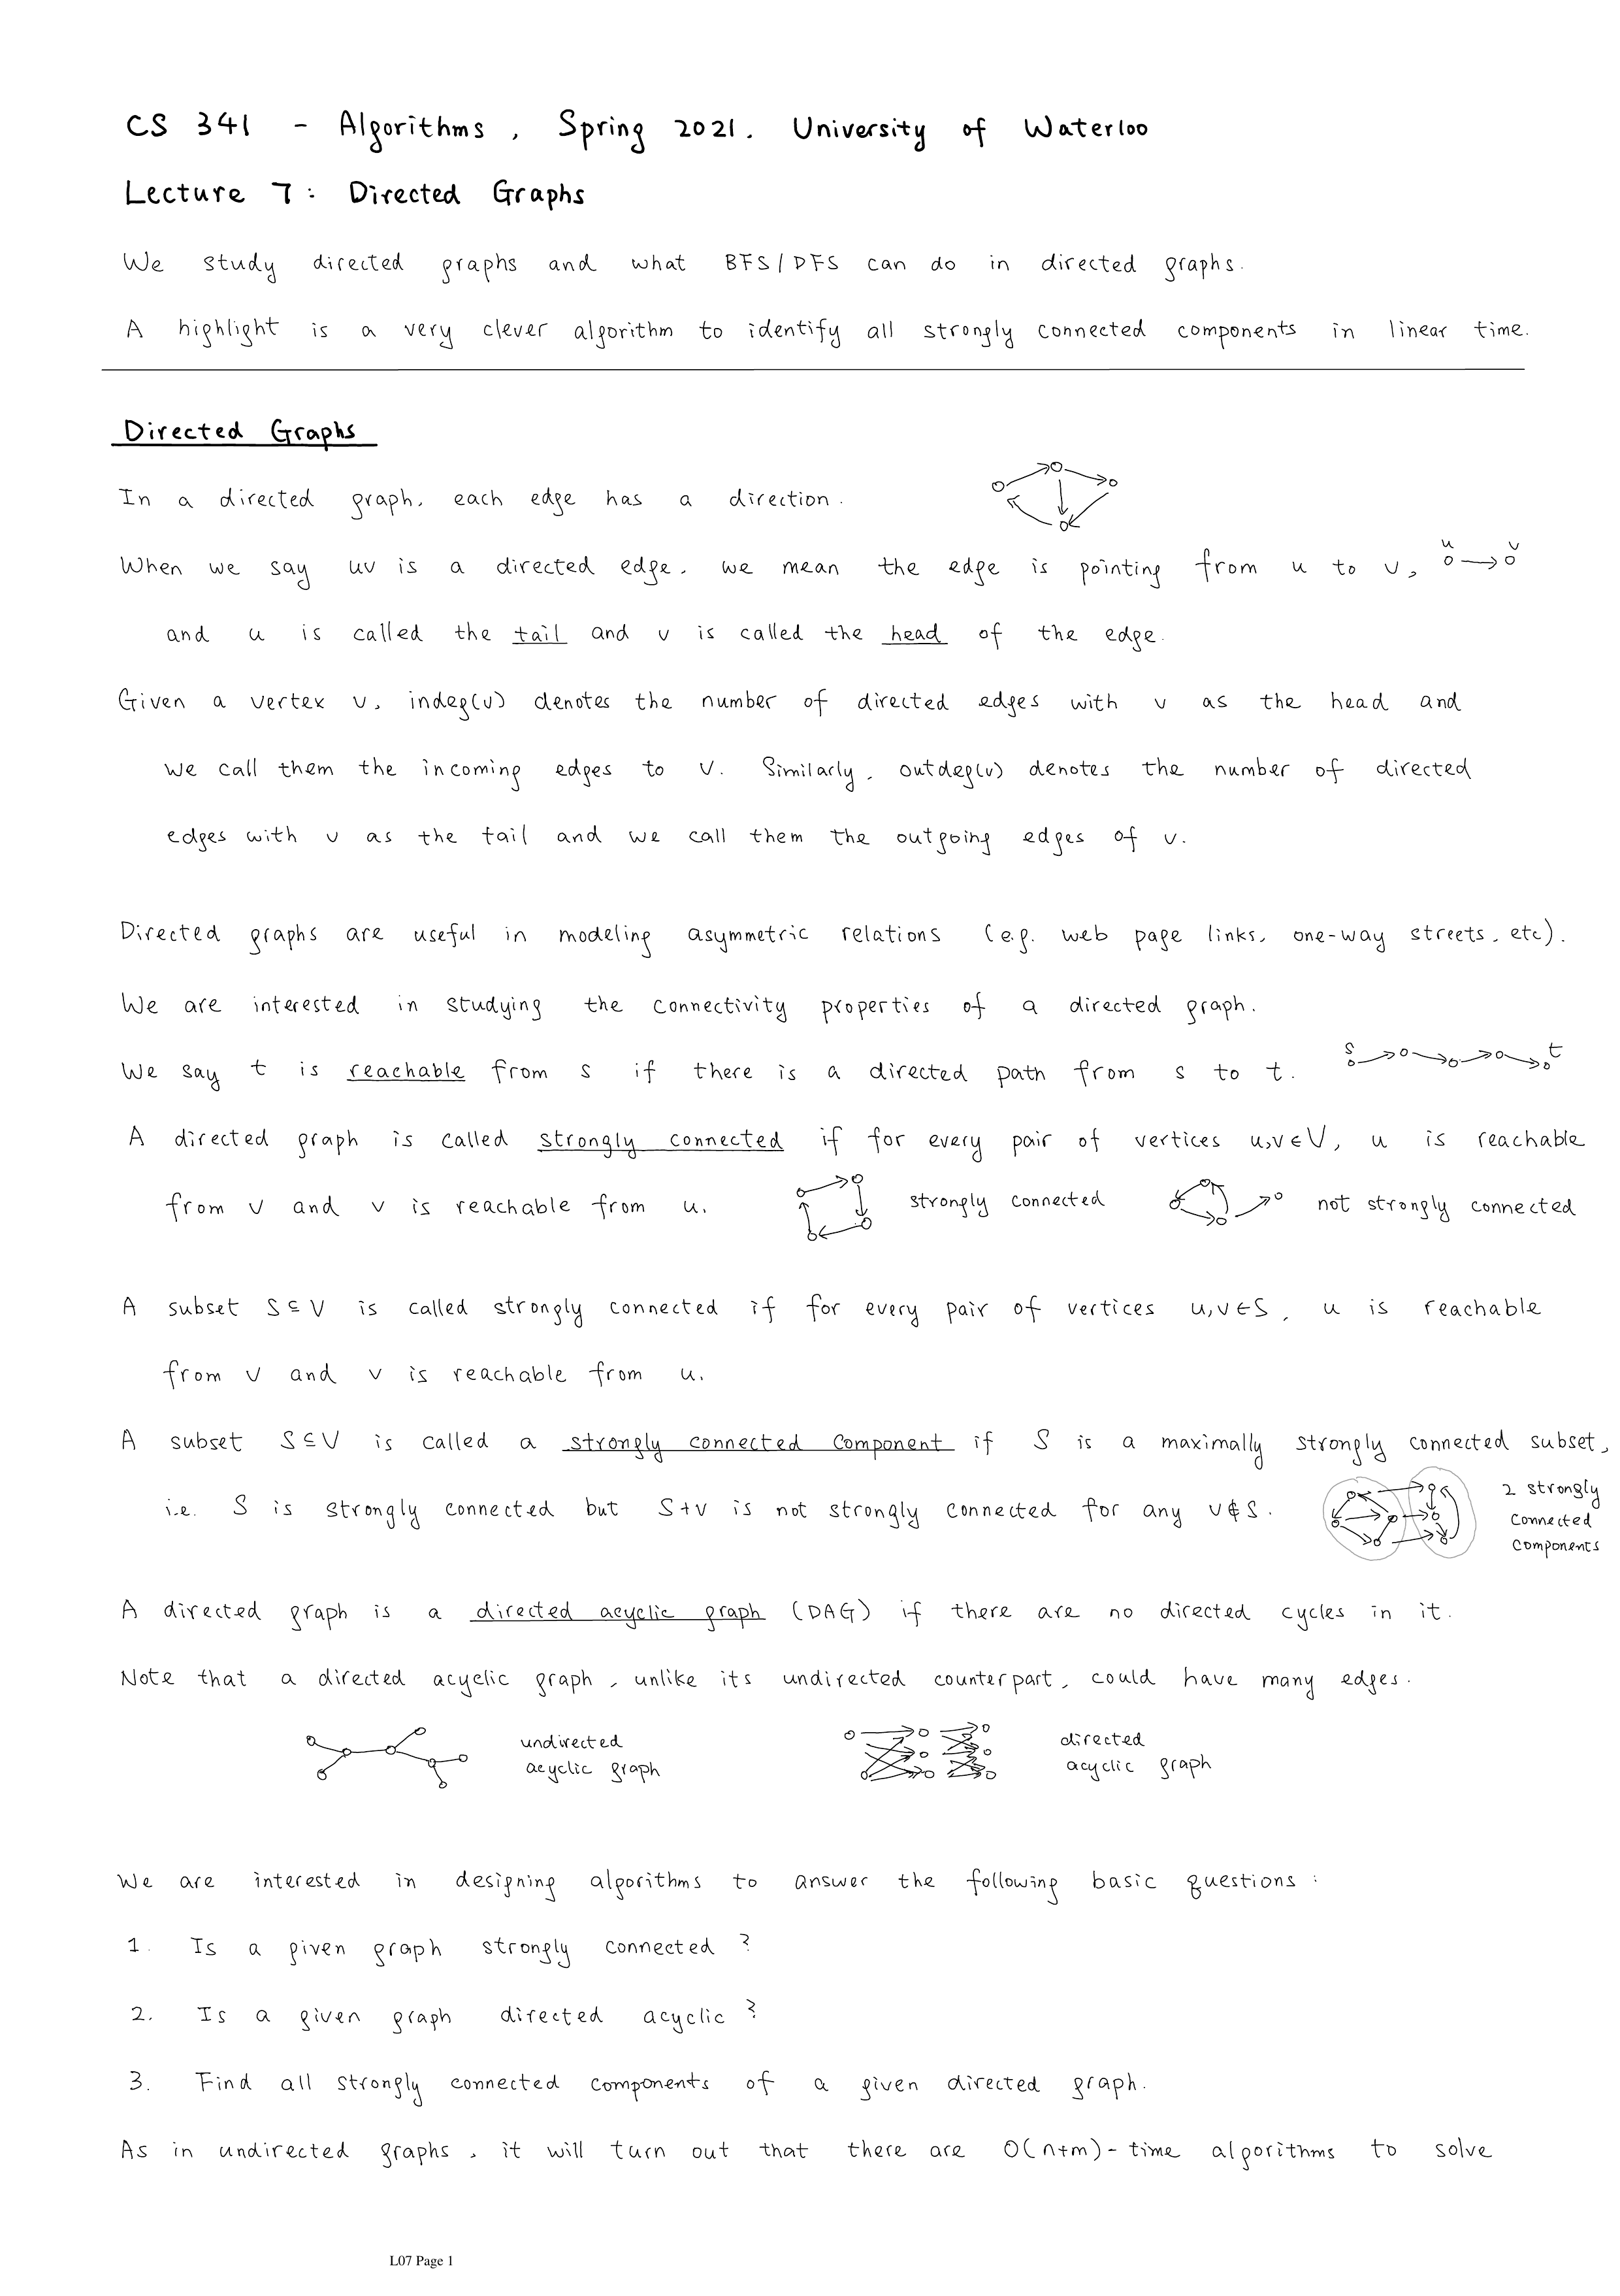 CS 341 - Algorithms, Spring 2021. University of Waterloo
Lecture 7: Directed Graphs
We study directed graphs and what BFS/DFS can do in directed graphs.
A highlight is a very clever algorithm to identify all strongly connected components in linear time.
Directed Graphs
In a directed graph, each edge has a direction.
When we say uv is a directed edge, we mean the edge is pointing from u to v, u v
and u is called the tail and v is called the head of the edge.
Given a vertex v, indeg(v) denotes the number of directed edges with v as the head and
we call them the incoming edges to v. Similarly, outdeg(v) denotes the number of directed
edges with v as the tail and we call them the outgoing edges of v.
Directed graphs are useful in modeling asymmetric relations (e.g. web page links, one-way streets, etc).
We are interested in studying the connectivity properties of a directed graph.
We say t is reachable from s if there is a directed path from s to t. s t
A directed graph is called strongly connected if for every pair of vertices u,v∈V, u is reachable
from v and v is reachable from u. strongly connected not strongly connected
A subset S⊆V is called strongly connected if for every pair of vertices u,v∈S, u is reachable
from v and v is reachable from u.
A subset S⊆V is called a strongly connected component if S is a maximally strongly connected subset,
i.e. S is strongly connected but S+v is not strongly connected for any v∉S.
2 strongly
connected
components
A directed graph is a directed acyclic graph (DAG) if there are no directed cycles in it.
Note that a directed acyclic graph, unlike its undirected counterpart, could have many edges.
undirected
acyclic graph
directed
acyclic graph
We are interested in designing algorithms to answer the following basic questions:
1. Is a given graph strongly connected?
2. Is a given graph directed acyclic?
3. Find all strongly connected components of a given directed graph.
As in undirected graphs, it will turn out that there are O(n+m)-time algorithms to solve
L07 Page 1